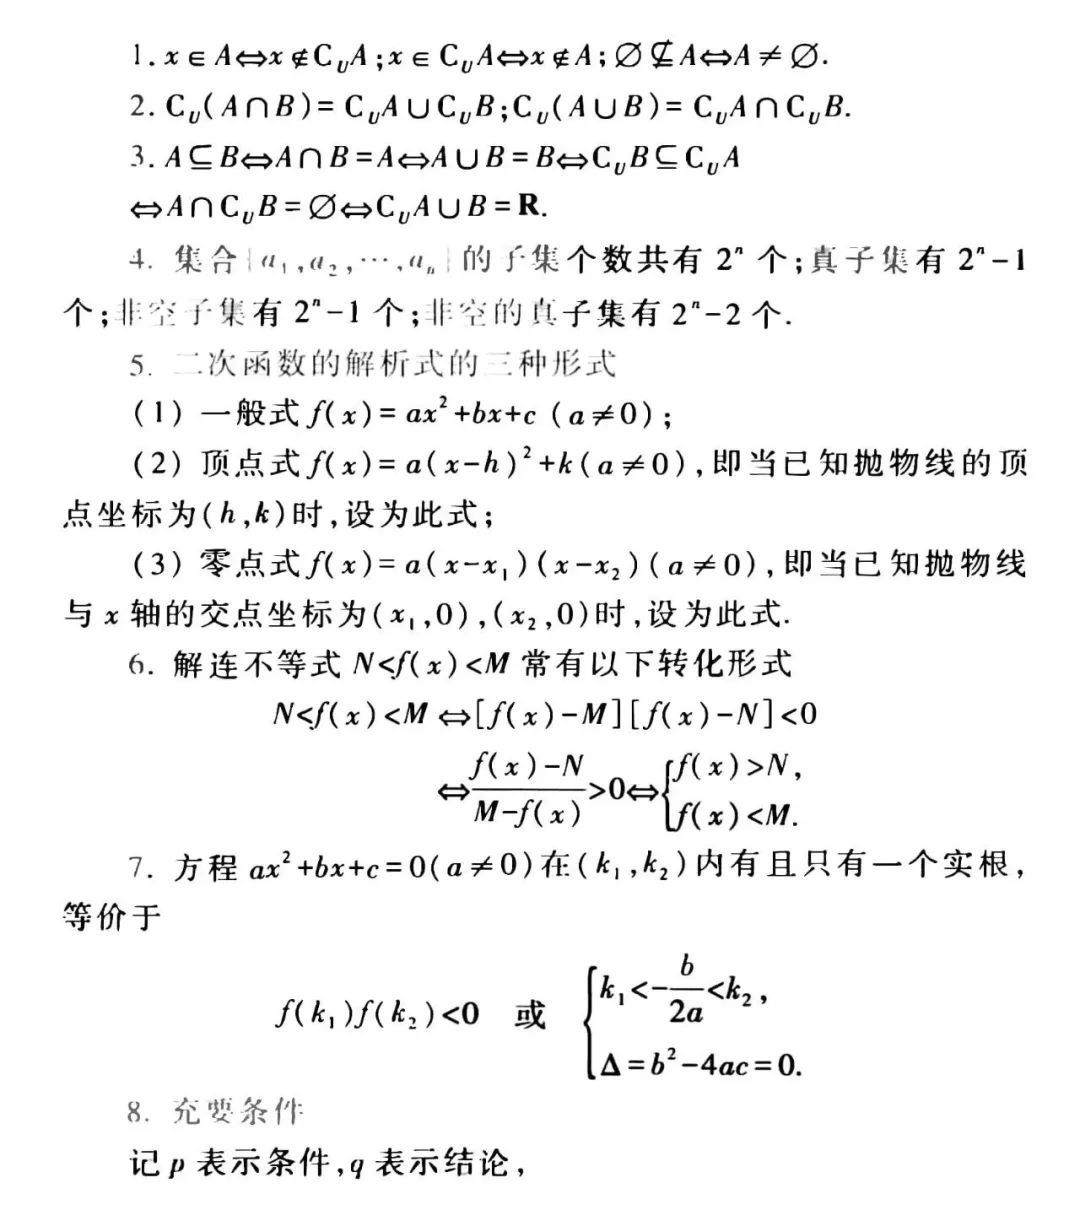 1. x∈A⇔x∉C_UA;x∈C_UA⇔x∉A;∅⫋A⇔A≠∅.
2. C_U(A∩B)=C_UA∪C_UB;C_U(A∪B)=C_UA∩C_UB.
3. A⊆B⇔A∩B=A⇔A∪B=B⇔C_UB⊆C_UA
⇔A∩C_UB=∅⇔C_UA∪B=R.
4. 集合{a₁,a₂,⋯,aₙ}的子集个数共有 2ⁿ 个;真子集有 2ⁿ-1
个;非空子集有 2ⁿ-1 个;非空的真子集有 2ⁿ-2 个.
5. 二次函数的解析式的三种形式
(1) 一般式 f(x)=ax²+bx+c (a≠0);
(2) 顶点式 f(x)=a(x-h)²+k(a≠0),即当已知抛物线的顶
点坐标为(h,k)时,设为此式;
(3) 零点式 f(x)=a(x-x₁)(x-x₂)(a≠0),即当已知抛物线
与 x 轴的交点坐标为(x₁,0),(x₂,0)时,设为此式.
6. 解连不等式 N<f(x)<M 常有以下转化形式
N<f(x)<M⇔[f(x)-M][f(x)-N]<0
⇔(f(x)-N)/(M-f(x))>0⇔{f(x)>N,
f(x)<M.
7. 方程 ax²+bx+c=0(a≠0)在(k₁,k₂)内有且只有一个实根,
等价于
f(k₁)f(k₂)<0 或 {k₁<-b/2a<k₂,
Δ=b²-4ac=0.
8. 充要条件
记 p 表示条件,q 表示结论,